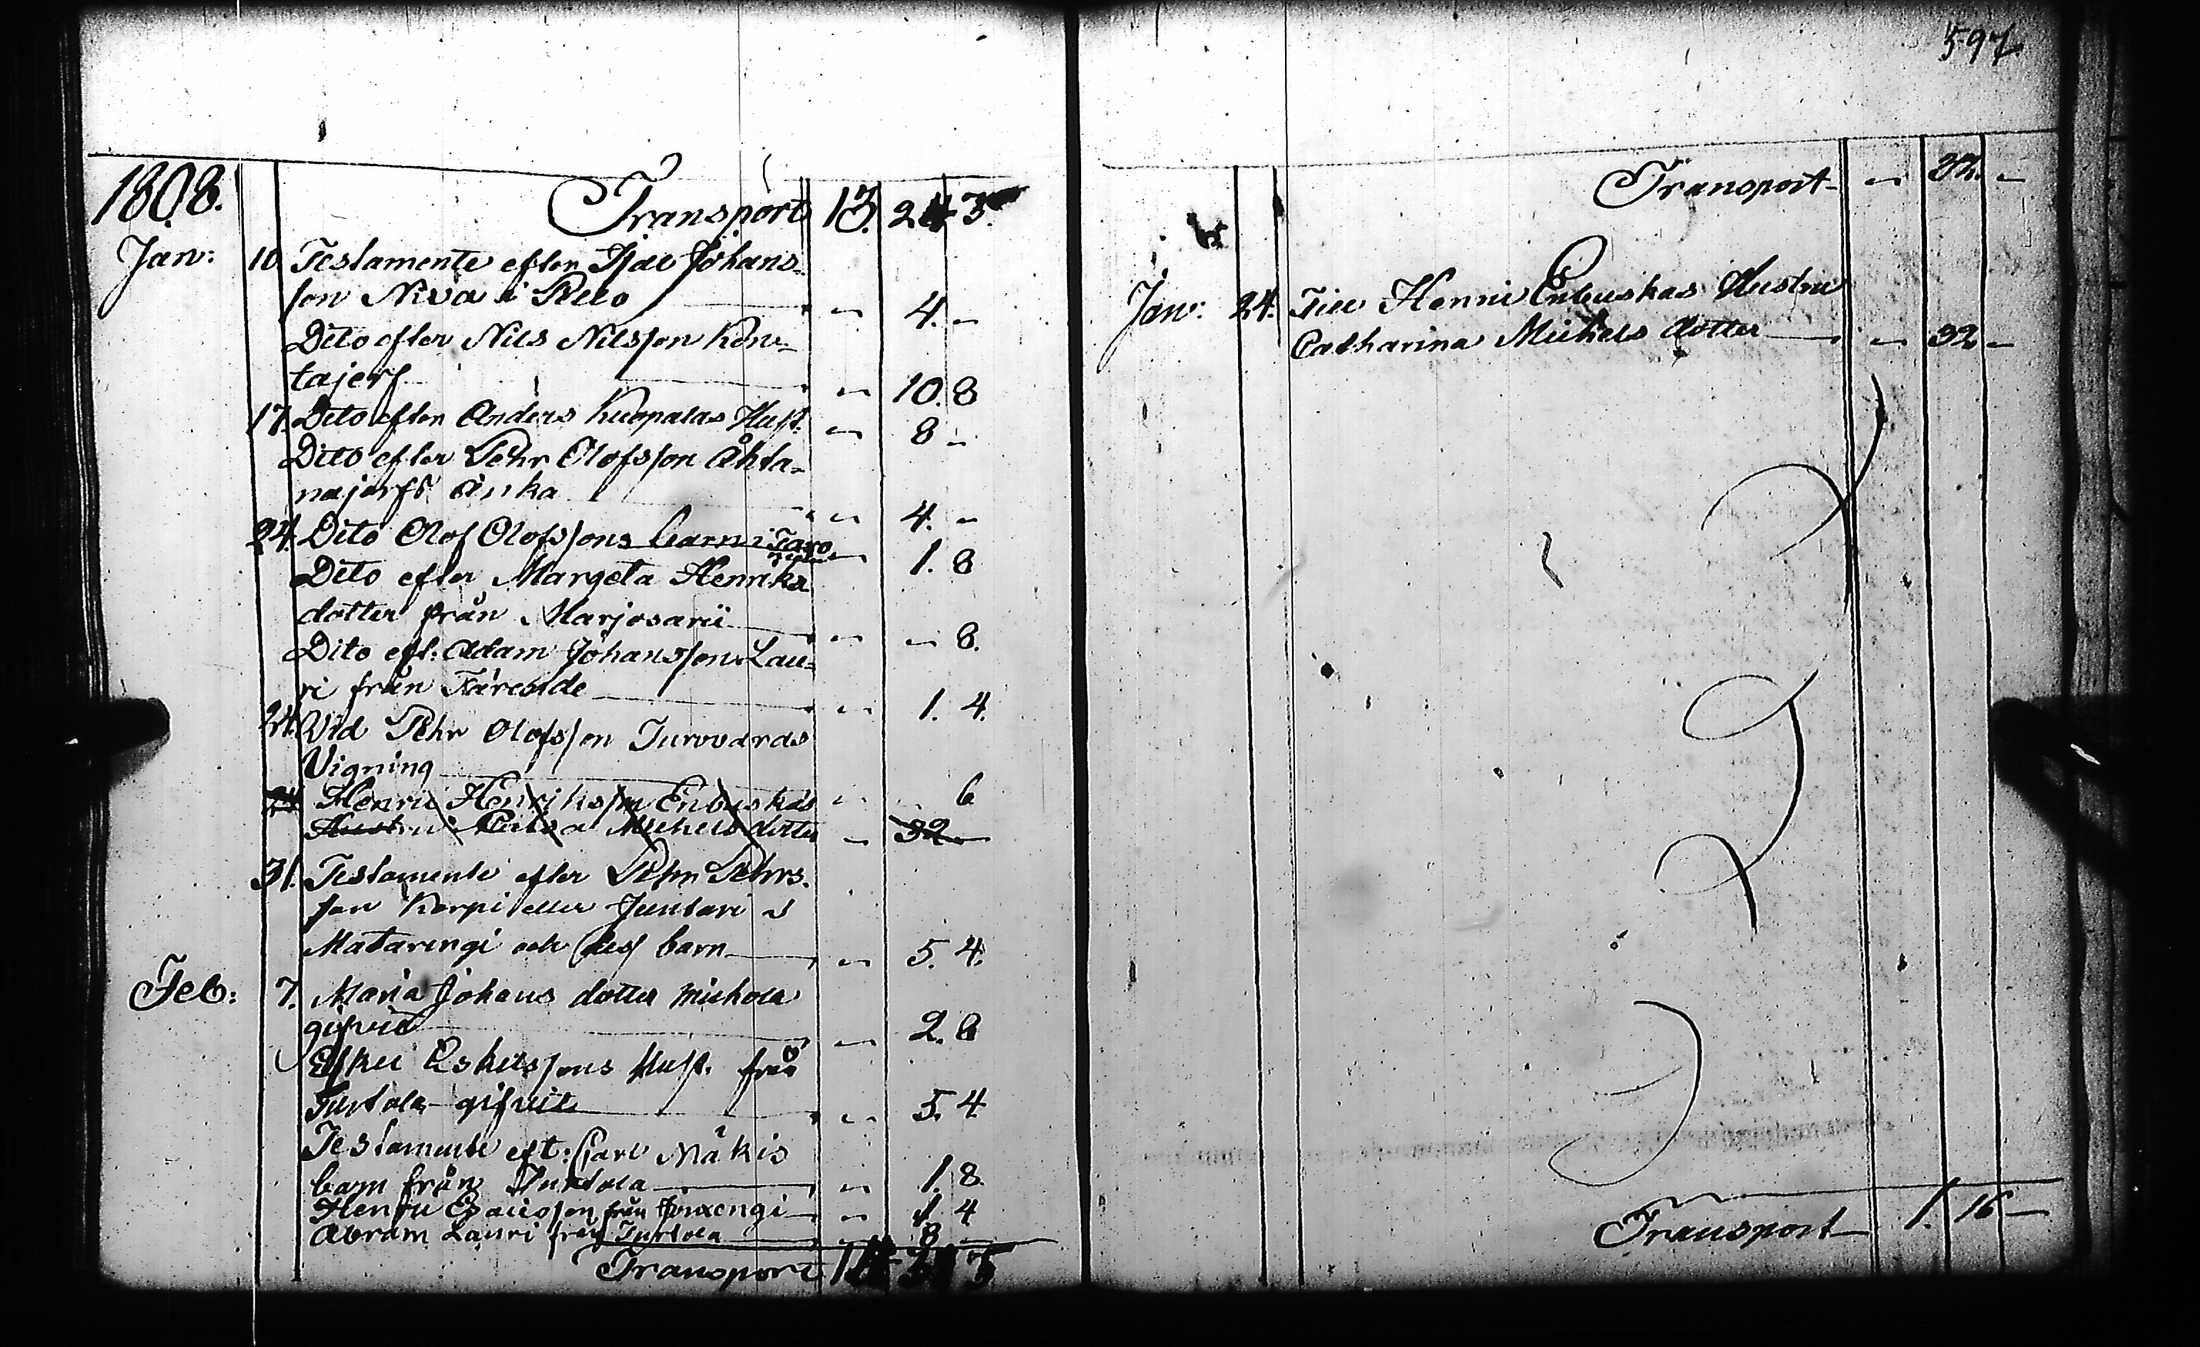 1808. Transport 13. 24 3.
Jan: 10. Testamente efter Isac Johans-
son Niva i Pello — 4. —
Dito efter Nils Nilsson Kon-
tajerf — 10. 8
17. Dito efter Anders Kuopalas Hust. — 8 —
Dito efter Pehr Olofsson
najerfs änka — 4. —
24. Dito Olof Olofssons barn i — 1. 8
Dito efter Margeta Henriks
dotter från Marjosarii — — 8.
Dito eft: Adam Johansson Lau-
ri från — 1. 4.
24. Vid Pehr Olofsson Jurovaras
Vigning — 6
24 Henric Henriksson Enbuskas
Hustru Michelsdotter — 32 —
31. Testamente efter Pehr Pehrs-
son Korpi eller Juntari i
Matarengi och dess barn — 5. 4.
Feb: 7. Maria Johans dotter Michola
gifvit — 2. 8
Eskel Eskelssons Hust. från
Turtola gifvit — 5. 4
Testamente eft: Carl Mäkis
barn från Turtola — 1. 8.
Henric Esaiesson från Juoxengi — 1 4
Abram Lauri från Turtola 8 —
Transport 14 31 5
597
Transport — 32. —
Jan: 24. Till Henric Enbuskas Hustru
Catharina Michels dotter — 32 —
Transport 1. 16 —